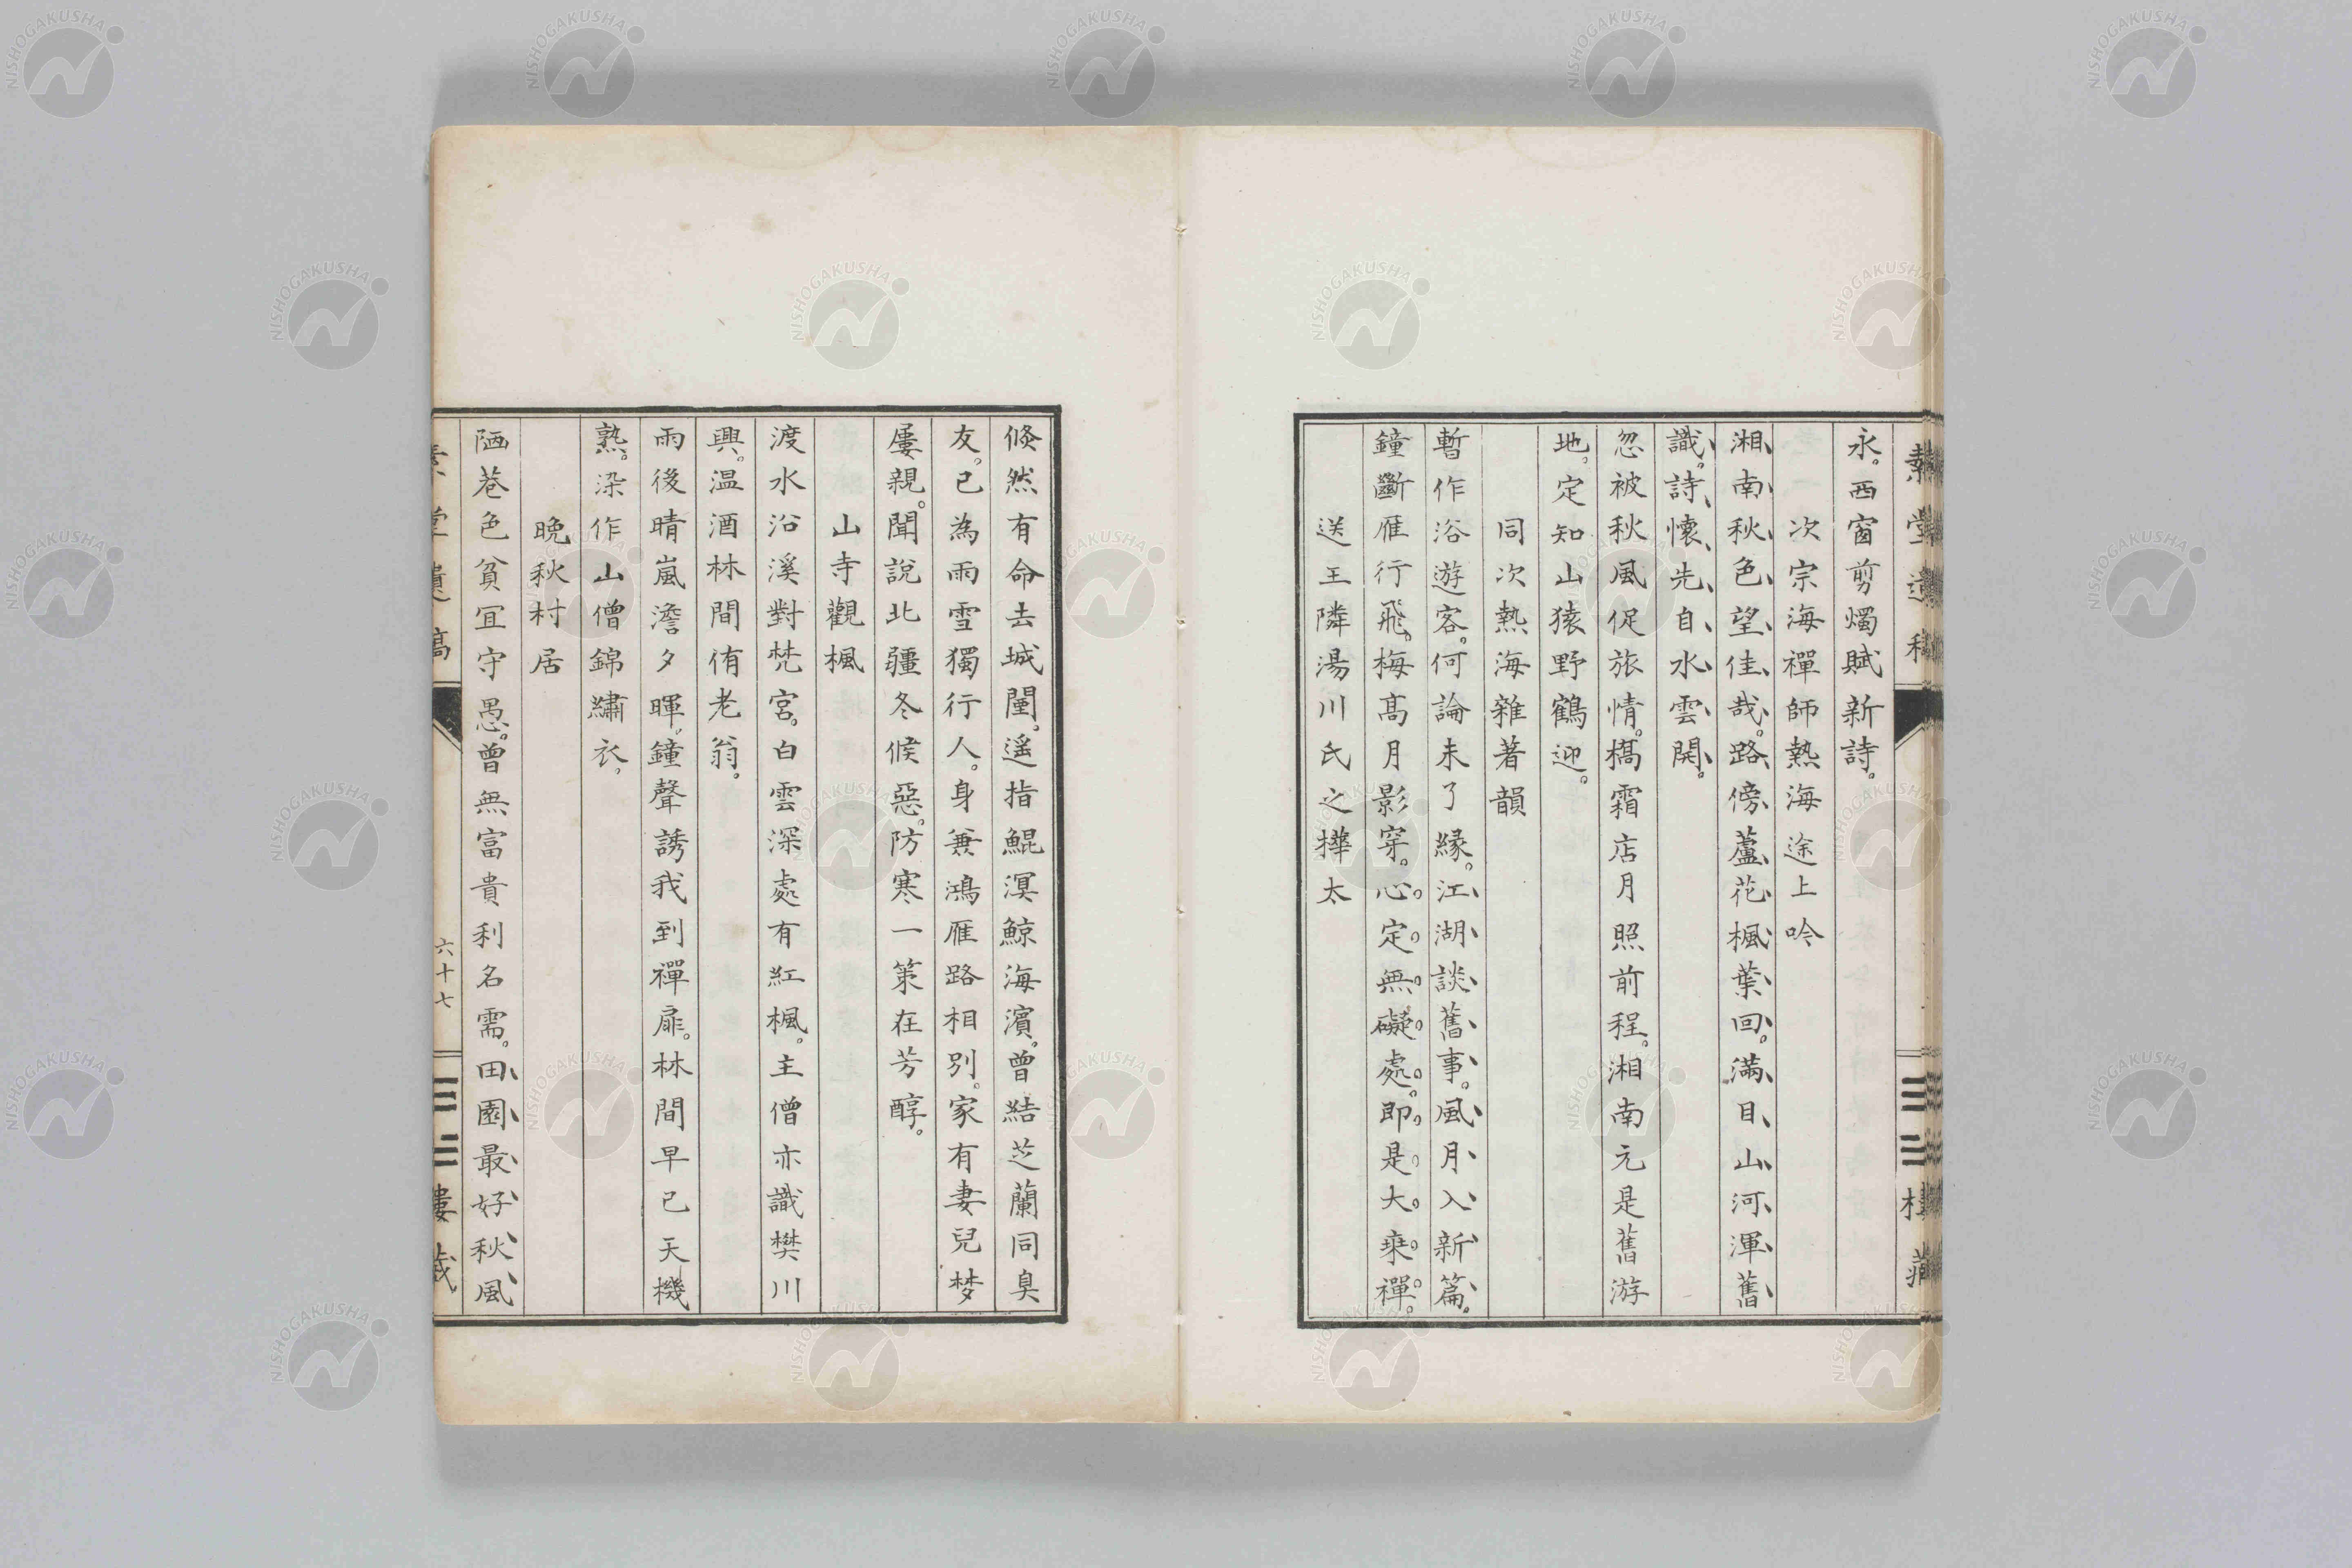 永。西窗剪燭賦新詩。
次宗海禪師熱海途上吟
湘南秋色望佳哉。路傍蘆花楓葉回。滿目山河渾舊
識。詩懷先自水雲開。
忽被秋風促旅情。橋霜店月照前程。湘南元是舊游
地。定知山猿野鶴迎。
同次熱海雜著韻
暫作浴遊客。何論未了緣。江湖談舊事。風月入新篇。
鐘斷雁行飛。梅高月影穿。心定無礙處。即是大乘禪。
送王隣湯川氏之樺太
倐然有命去城闉。遥指鯤溟鯨海濱。曾結芝蘭同臭
友。已為雨雪獨行人。身兼鴻雁路相別。家有妻兒梦
屢親。聞說北疆冬候惡。防寒一策在芳醇。
山寺觀楓
渡水沿溪對梵宮。白雲深處有紅楓。主僧亦識樊川
興。温酒林間侑老翁。
雨後晴嵐澹夕暉。鐘聲誘我到禪扉。林間早已天機
熟。染作山僧錦繡衣。
晩秋村居
陋巷色貧宜守愚。曾無富貴利名需。田園最好秋風
六十七
NISHOGAKUSHA